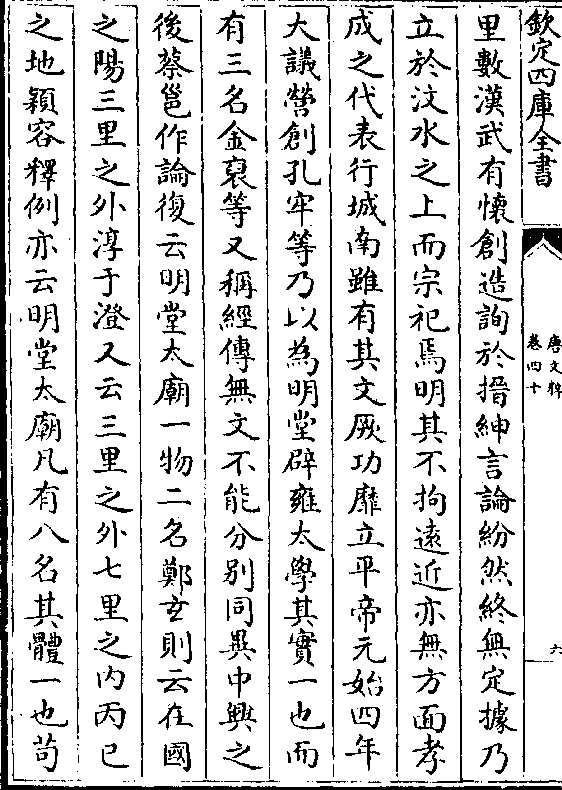 欽定四庫全書
唐文粹
卷四十
六
里數漢武有懷創造詢於搢紳言論紛然終無定據乃
立於汶水之上而宗祀焉明其不拘遠近亦無方面孝
成之代表行城南雖有其文厥功靡立平帝元始四年
大議營創孔牢等乃以為明堂辟雍太學其實一也而
有三名金裒等又稱經傳無文不能分別同異中興之
後蔡邕作論復云明堂太廟一物二名鄭玄則云在國
之陽三里之外淳于澄又云三里之外七里之内丙已
之地穎容釋例亦云明堂太廟凡有八名其體一也茍